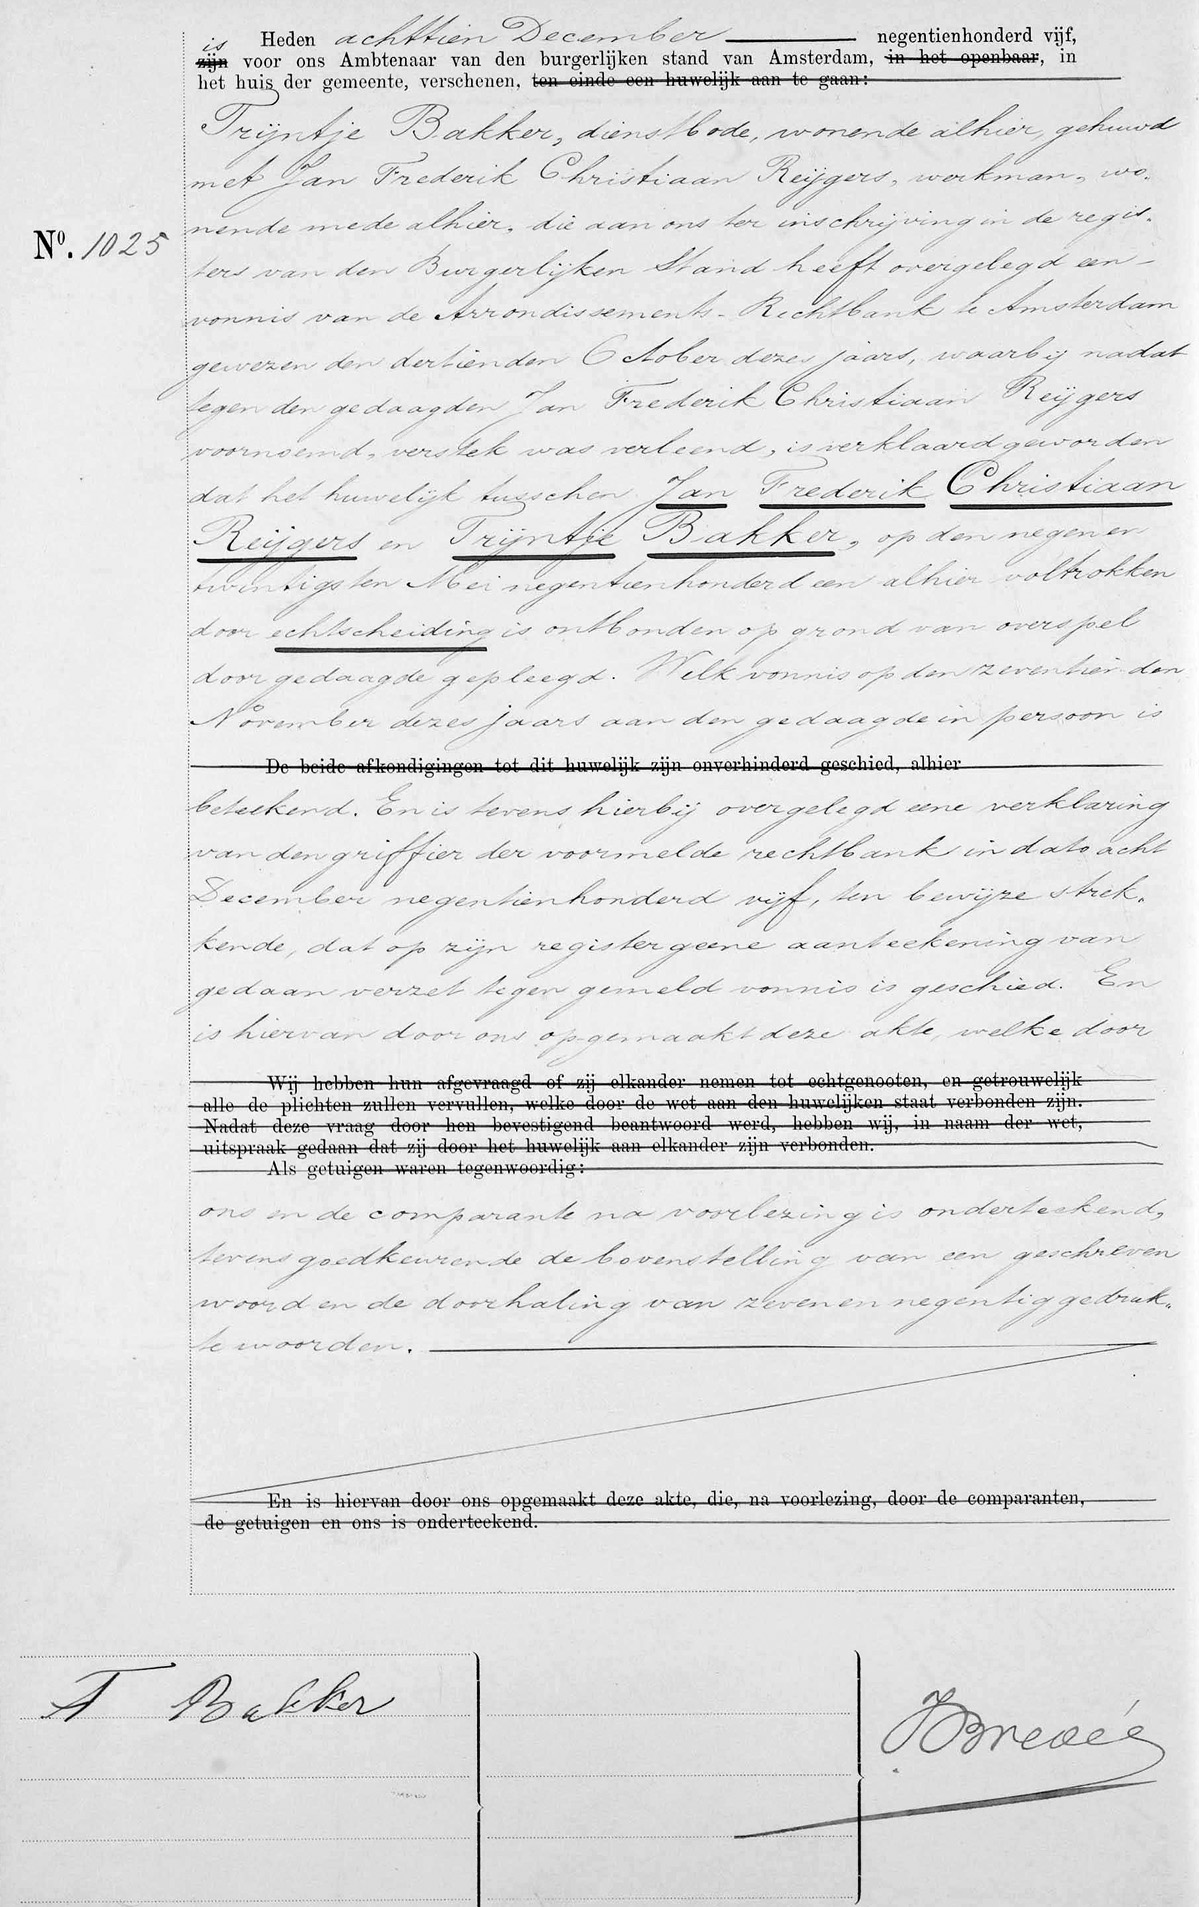 Heden achttien December negentienhonderd vijf,
is
zijn voor ons Ambtenaar van den burgerlijken stand van Amsterdam, in het openbaar, in
het huis der gemeente, verschenen, ten einde een huwelijk aan te gaan:
Trijntje Bakker, dienstbode, wonende alhier, gehuwd
met Jan Frederik Christiaan Reijgers, werkman, wo-
nende mede alhier, die aan ons ter inschrijving in de regis-
ters van den Burgerlijken Stand heeft overgelegd een
No. 1025
vonnis van de Arrondissements-Rechtbank te Amsterdam
gewezen den dertienden October dezes jaars, waarbij nadat
tegen den gedaagden Jan Frederik Christiaan Reijgers
voornoemd, verstek was verleend, is verklaard geworden
dat het huwelijk tusschen Jan Frederik Christiaan
Reijgers en Trijntje Bakker, op den negen en
twintigsten Mei negentienhonderd een alhier voltrokken
door echtscheiding is ontbonden op grond van overspel
door gedaagde gepleegd. Welk vonnis op den zeventienden
November dezes jaars aan den gedaagde in persoon is
De beide afkondigingen tot dit huwelijk zijn onverhinderd geschied, alhier
beteekend. En is tevens hierbij overgelegd eene verklaring
van den griffier der voormelde rechtbank in dato acht
December negentienhonderd vijf, ten bewijze strek-
kende, dat op zijn register geene aanteekening van
gedaan verzet tegen gemeld vonnis is geschied. En
is hiervan door ons opgemaakt deze akte, welke door
Wij hebben hun afgevraagd of zij elkander nemen tot echtgenooten, en getrouwelijk
alle de plichten zullen vervullen, welke door de wet aan den huwelijken staat verbonden zijn.
Nadat deze vraag door hen bevestigend beantwoord werd, hebben wij, in naam der wet,
uitspraak gedaan dat zij door het huwelijk aan elkander zijn verbonden.
Als getuigen waren tegenwoordig:
ons en de comparante na voorlezing is onderteekend,
tevens goedkeurende de bovenstelling van een geschreven
woord en de doorhaling van zeven en negentig gedruk-
te woorden.
En is hiervan door ons opgemaakt deze akte, die, na voorlezing, door de comparanten,
de getuigen en ons is onderteekend.
T Bakker
JBrevée